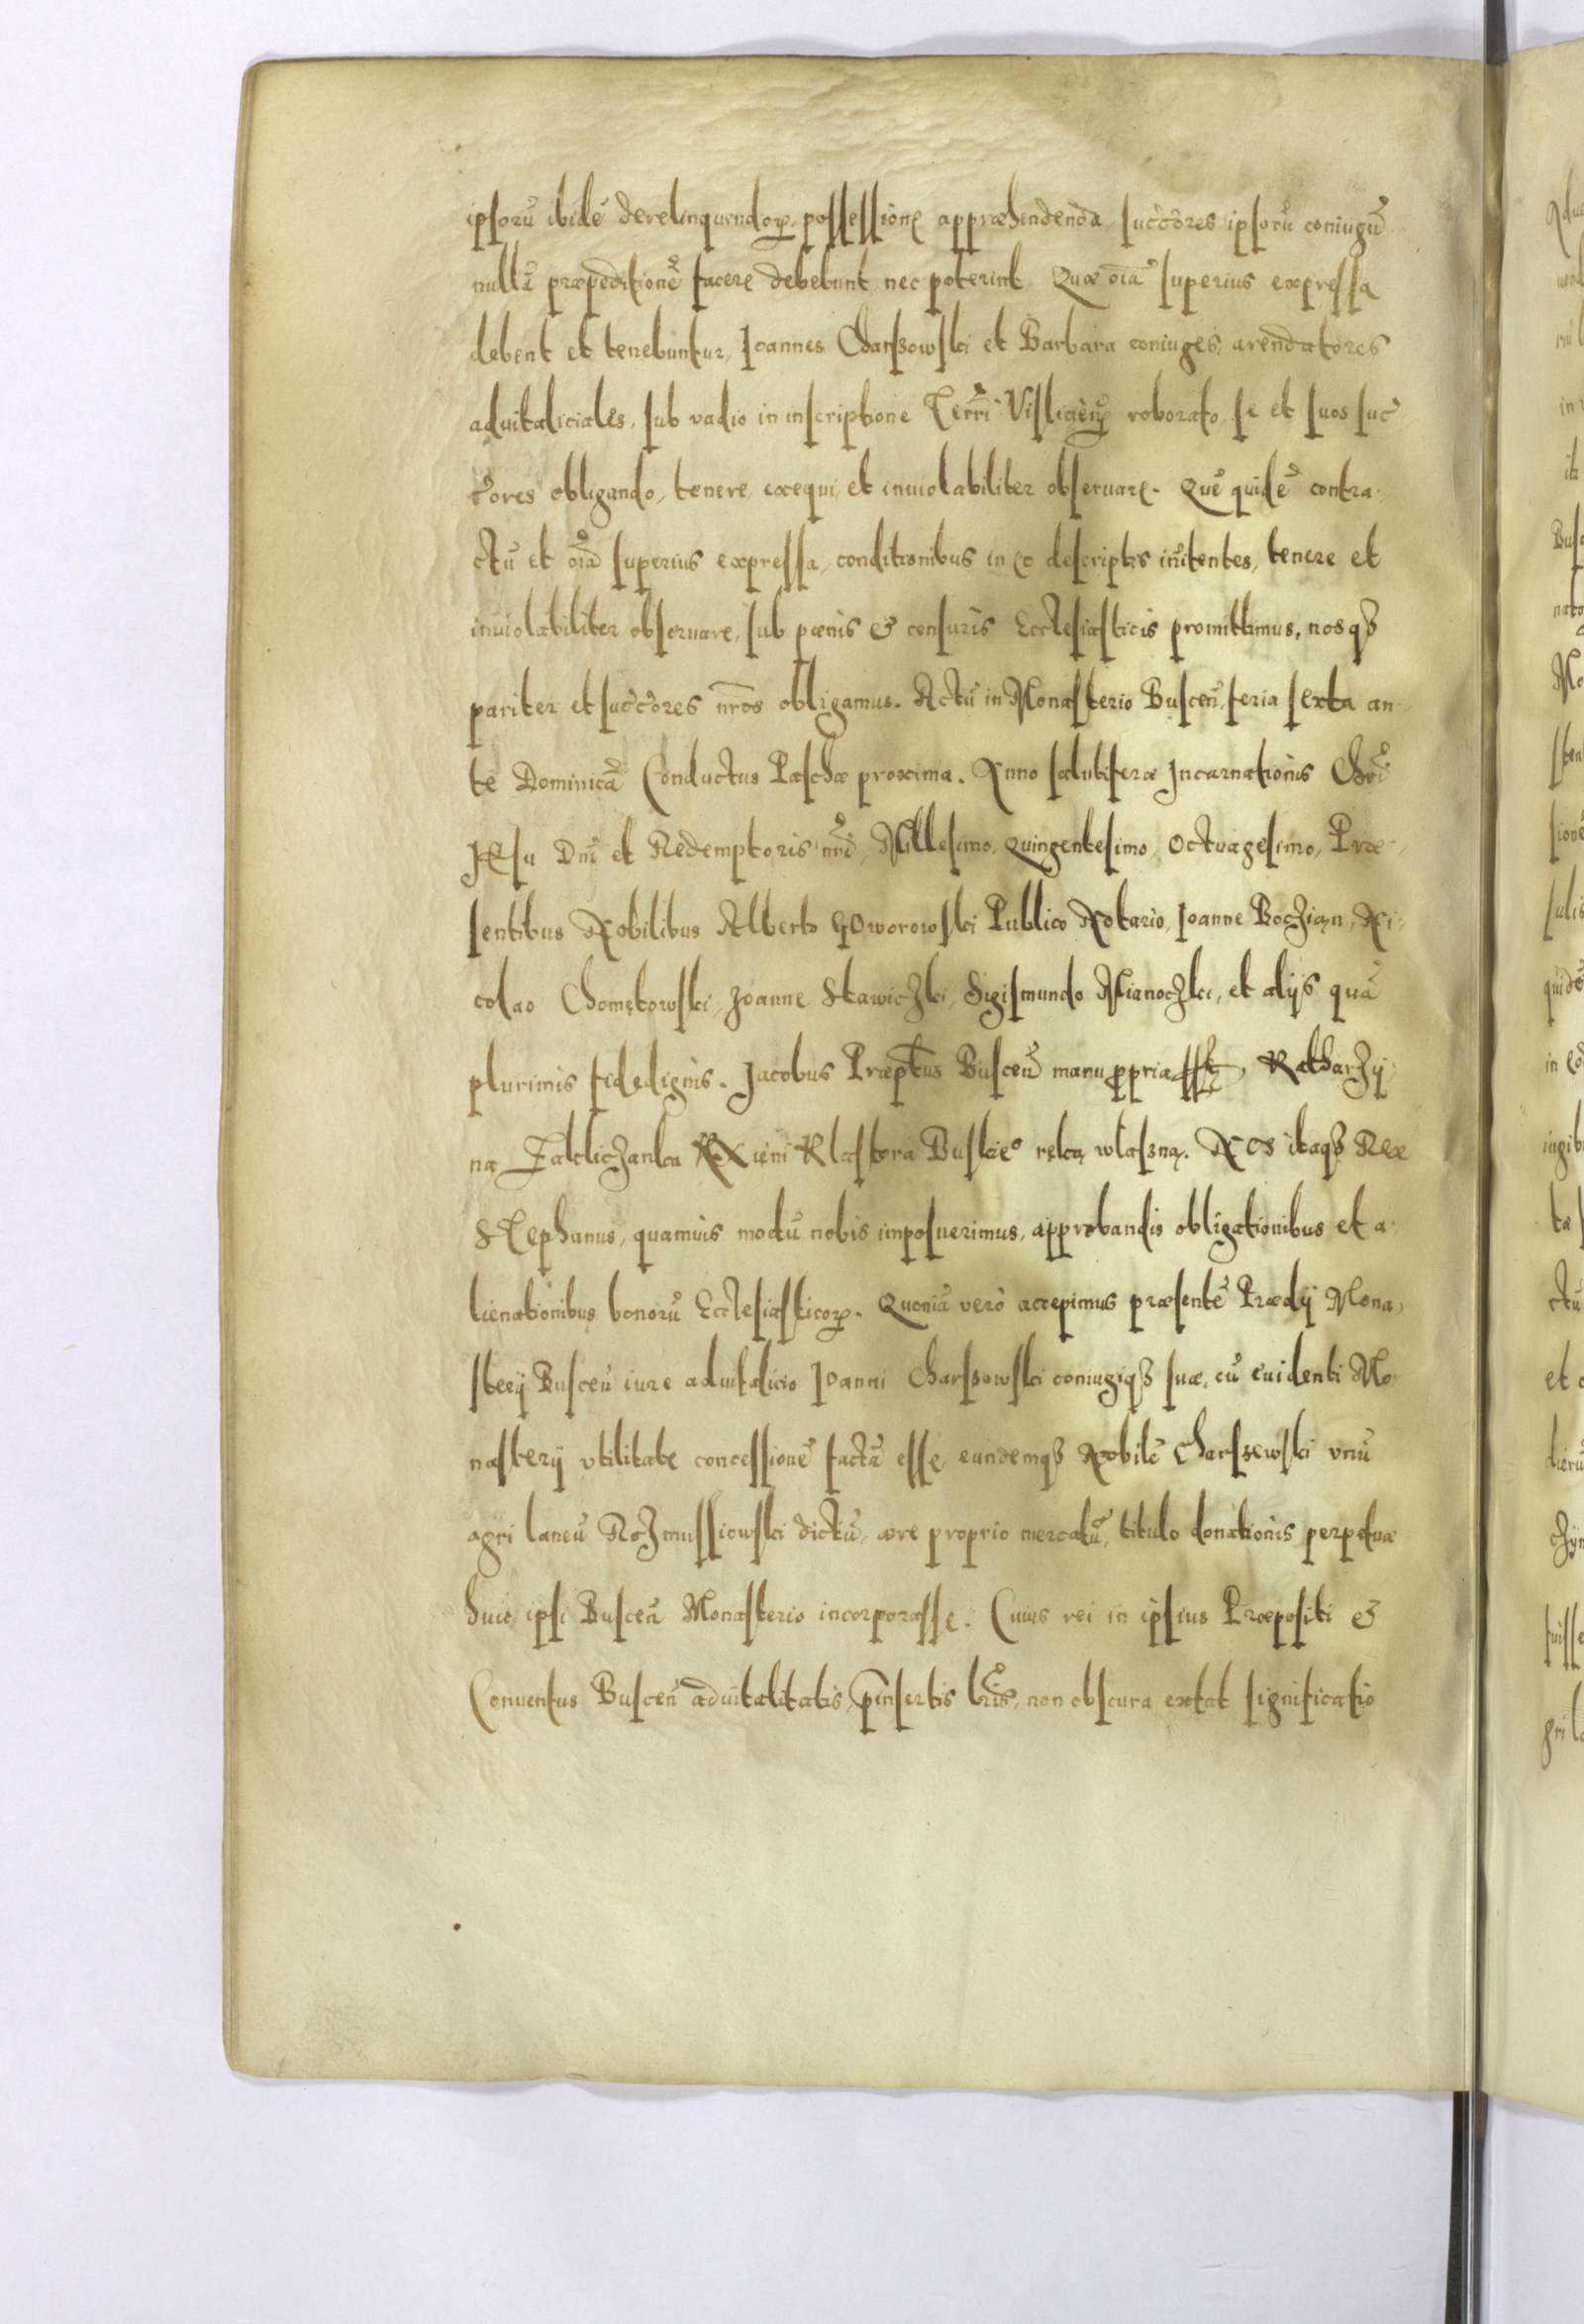 ipsorũ ibidẽ derelinquendoꝝ, possessionẽ appræhendenda, succ̃ores ipsorũ coniugũ
nullã præpeditionẽ facere debebunt nec poterint. Quæ oĩa superius expressa
debent et tenebuntur, Joannes Charszowski et Barbara coniuges, arendatores
aduitaliciales, sub vadio in inscriptione Terrĩ Visliciẽn roborato, se et suos suc
c̃ores obligando, tenere, exequi, et inuiolabiliter obseruare. Quẽ quidẽ contra
ctũ et oĩa superius expressa, conditionibus in eo descriptis iñitentes, tenere et
inuiolabiliter obseruare, sub pœnis & censuris Ecclesiasticis promittimus, nosqꝫ
pariter et succ̃ores nr̃os obligamus. Actũ in Monasterio Buscen̄, feria sexta an
te Dominicã Conductus Paschæ proxima. Anno salutiferæ Incarnationis Chrĩ
JEsu Dnĩ et Redemptoris nrĩ, Millesimo, Quingentesimo, Octuagesimo, Præ
sentibus Nobilibus Alberto Goworowski Publico Notario, Joanne Boczian, Ni
colao Chomętowski, Joanne Stawiczki, Sigismundo Mianoczki, et alijs quã
plurimis fidedignis. Jacobus Præptus Buscen̄ manu ꝓpria sst, Katharzy
na Zakliczanka Xieni Klasztora Buskie° ręką własną. Nos itaqꝫ Rex
Stephanus, quamuis modũ nobis imposuerimus, approbandis obligationibus et a
lienationibus bonorũ Ecclesiasticoꝝ. Quoniã verò accepimus præsentẽ Prædij Mona
sterij Buscen̄ iure aduitalicio Joanni Charszowski coniugiqꝫ suæ, cũ euidenti Mo
nasterij vtilitate concessionẽ factã esse, eundemqꝫ Nobilẽ Charszewski vnũ
agri laneũ Rozmussiowski dictũ, ære proprio mercatũ, titulo donationis perpetuæ
huic ipsi Buscen̄ Monasterio incorporasse. Cuius rei in ipsius Præpositi &
Conuentus Buscen̄ aduitalitatis, p̄insertis lr̃is, non obscura extat significatio